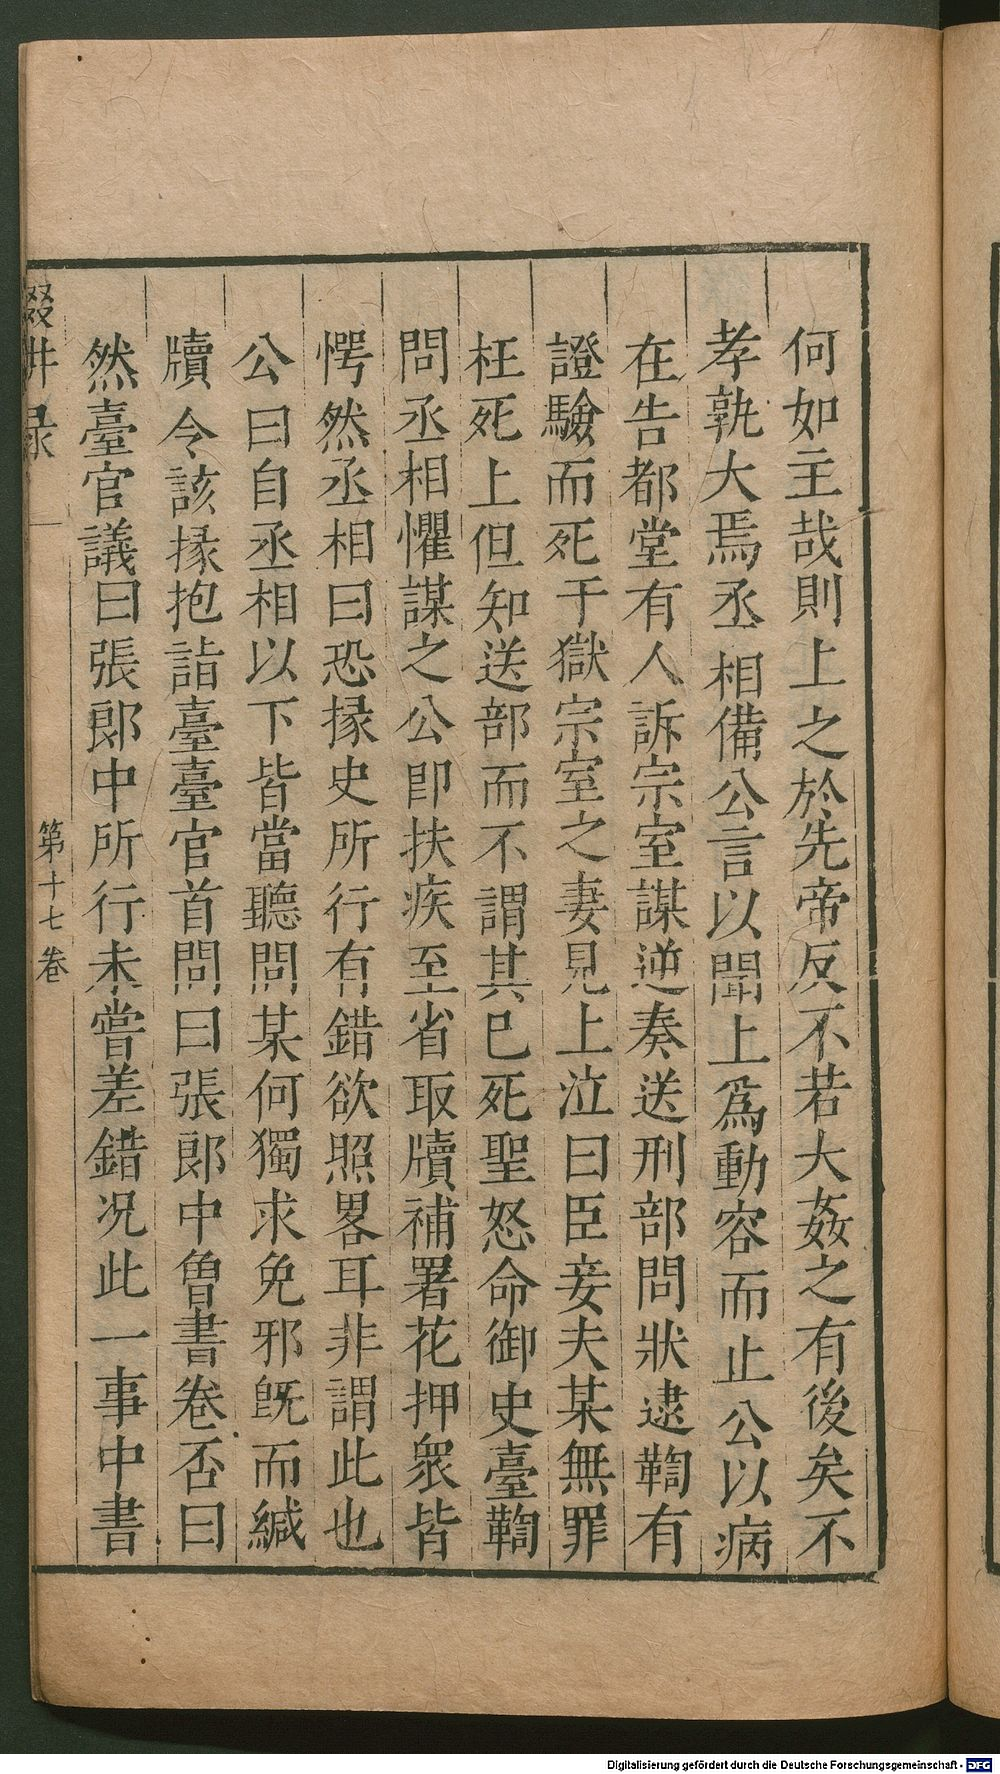 何如主哉則上之於先帝反不若大姦之有後矣不
孝孰大焉丞相備公言以聞上爲動容而止公以病
在告都堂有人訴宗室謀逆奏送刑部問狀逮鞫有
證驗而死于獄宗室之妻見上泣曰臣妾夫某無罪
枉死上但知送部而不謂其已死聖怒命御史臺鞫
問丞相懼謀之公卽扶疾至省取牘補署花押衆皆
愕然丞相曰恐掾史所行有錯欲照畧耳非謂此也
公曰自丞相以下皆當聽問某何獨求免邪旣而緘
牘令該掾抱詣臺臺官首問曰張郎中曾書卷否曰
然臺官議曰張郎中所行未嘗差錯况此一事中書
輟耕录
第十七卷
Digitalisierung gefördert durch die Deutsche Forschungsgemeinschaft - DFG